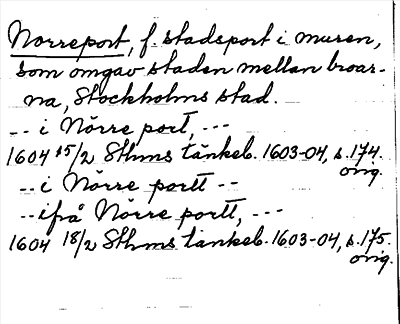 Norreport, f. stadsport i muren,
som omgav staden mellan broar-
na, Stockholms stad.
-- i Nörre port, ---
1604 15/2 Sthms tänkeb. 1603-04, s. 174.
orig.
-- i Nörre portt --
-- ifrå Nörre portt, ---
1604 18/2 Sthms tänkeb. 1603-04, s. 175.
orig.